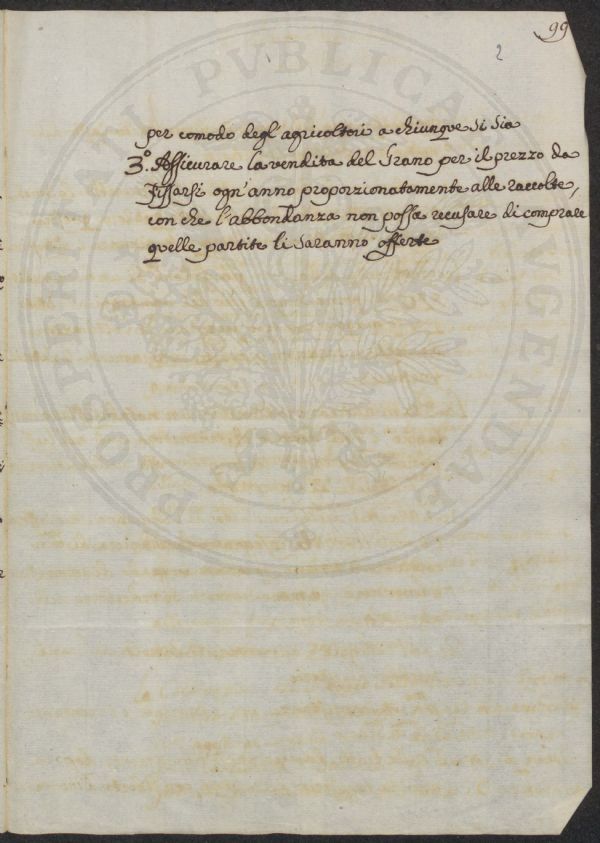 99
2
per comodo degl'agricoltori a chiunque si sia
3.º Assicurare la vendita del Grano per il prezzo da
fissarsi ogn'anno proporzionatamente alle raccolte,
con che l'abbondanza non possa recusare di comprare
quelle partite li saranno offerte
PROSPERITATI PVBLICAE AVGENDAE